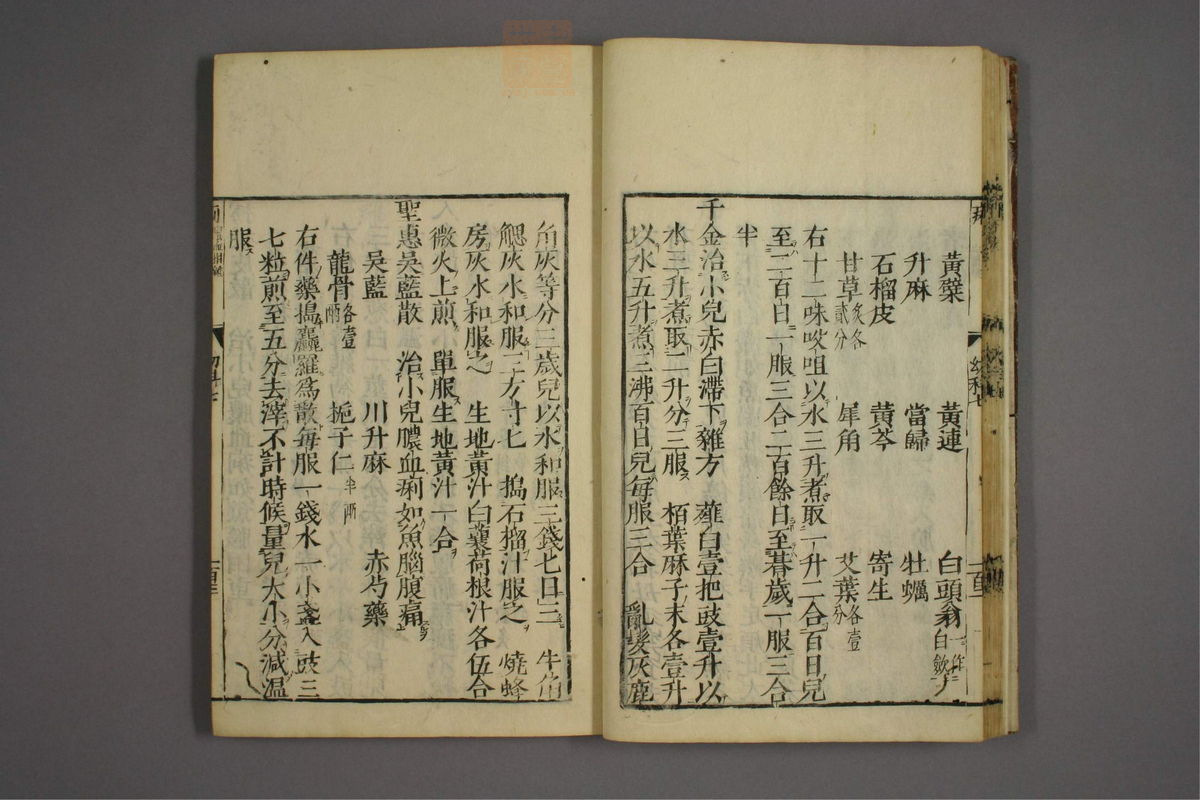 黃蘗 黃連 白頭翁一作白蘞
升麻 當歸 牡蠣
石榴皮 黃芩 寄生
甘草炙各貳分 犀角 艾葉各壹分
右十二味㕮咀以水三升煮取一升二合百日兒
至二百日一服三合二百餘日至朞歲一服三合
半
千金治小兒赤白滯下雜方 薤白壹把豉壹升以
水三升煮取二升分三服 栢葉麻子末各壹升
以水五升煮三沸百日兒每服三合 亂髮灰鹿
角灰等分三歲兒以水和服三錢匕日三 牛角
䚡灰水和服三方寸匕 搗石榴汁服之 燒蜂
房灰水和服之 生地黃汁白蘘荷根汁各伍合
微火上煎 單服生地黃汁一合
聖惠吳藍散 治小兒膿血痢如魚腦腹痛
吳藍 川升麻 赤芍藥
龍骨各壹兩 梔子仁半兩
右件藥搗麤羅爲散每服一錢水一小盞入豉三
七粒煎至五分去滓不計時候量兒大小分減温
服
幼科七